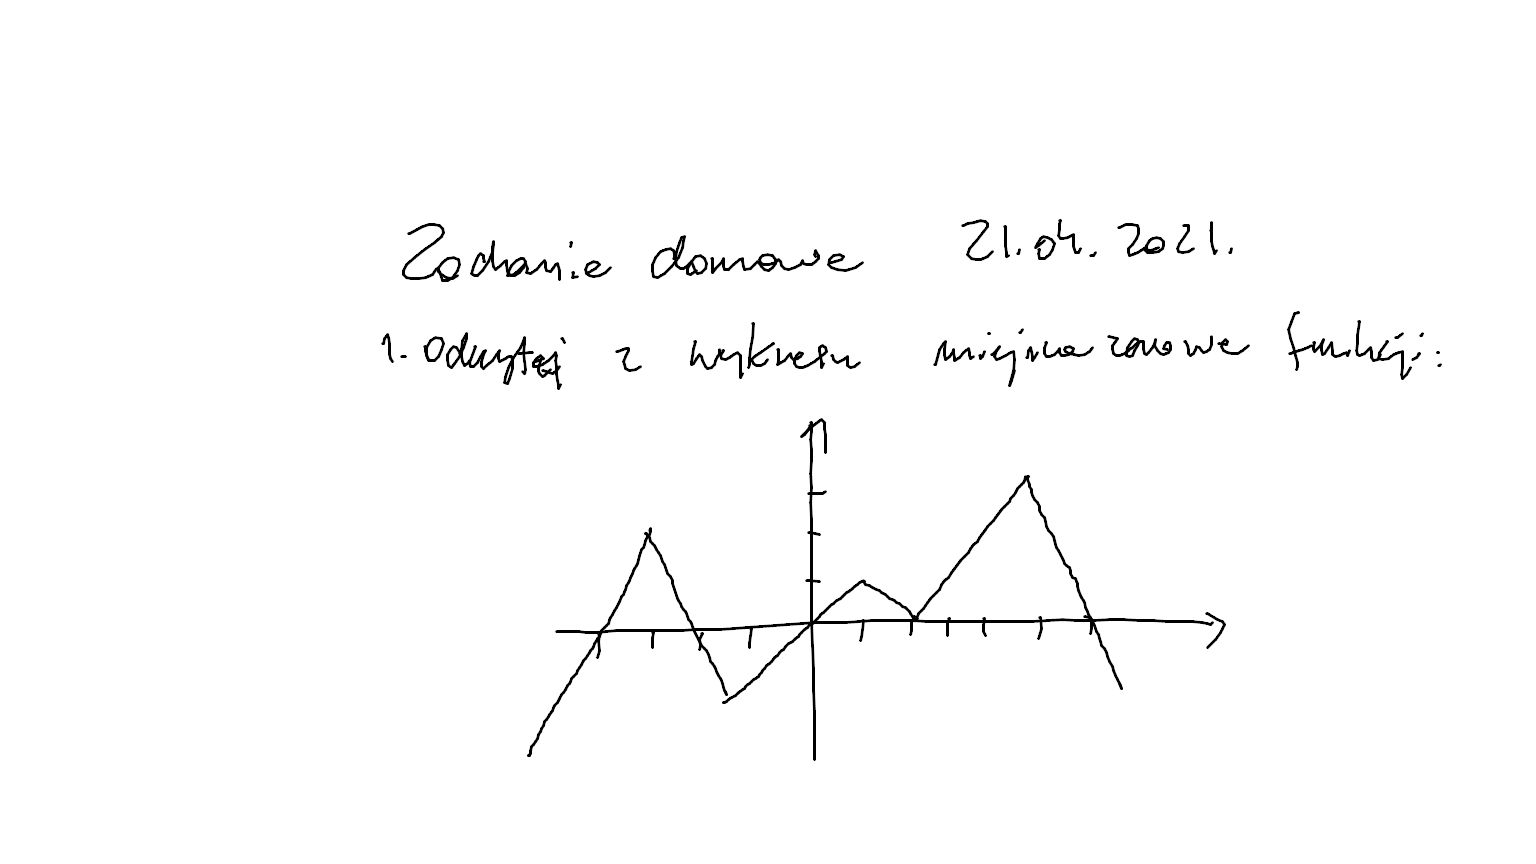 Zadanie domowe 21.04.2021.
1. Odczytaj z wykresu miejsca zerowe funkcji: